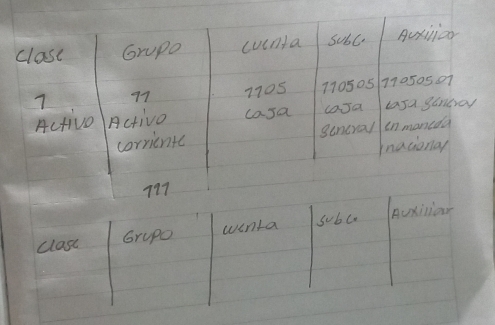 Clase Grupo Cuenta Subc. Auxiliar
1 11 1105 110505 11050501
Activo Activo caja caja caja general
corriente general en moneda
nacional
111
Clase Grupo Cuenta Subc. Auxiliar